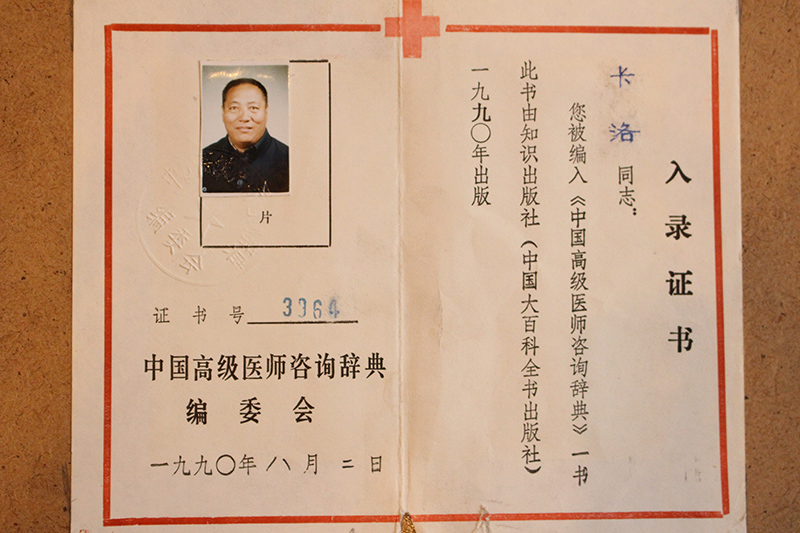 入录证书
卡洛同志:
您被编入《中国高级医师咨询辞典》一书
此书由知识出版社(中国大百科全书出版社)
一九九〇年出版
片
证书号
中国高级医师咨询辞典
编委会
一九九〇年八月二日